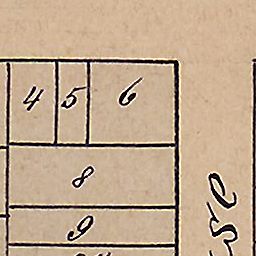 4 5 6
8
9
se